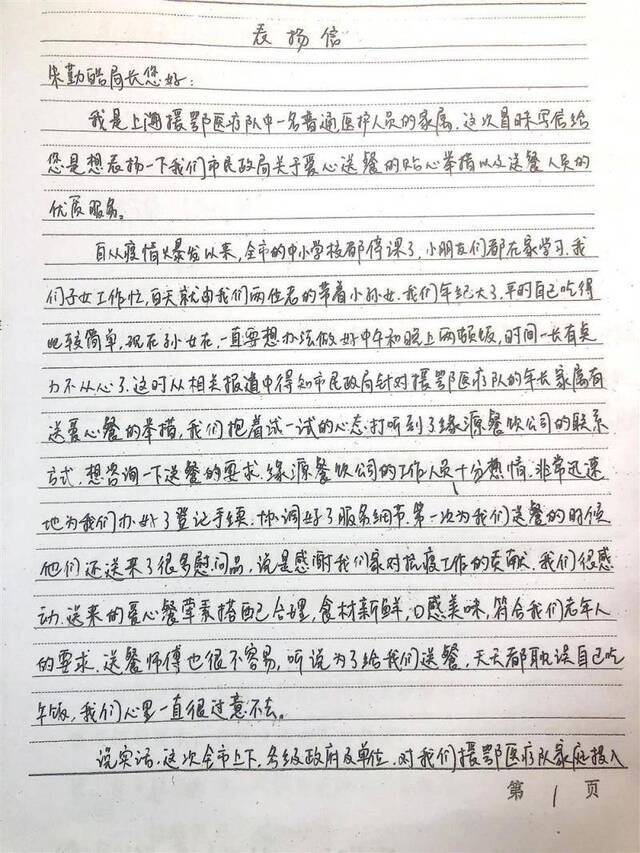 表扬信
朱勤皓局长您好：
我是上海援鄂医疗队中一名普通医护人员的家属，这次冒昧写信给
您是想表扬一下我们市民政局关于爱心送餐的贴心举措以及送餐人员的
优质服务。
自从疫情爆发以来，全市的中小学校都停课了，小朋友们都在家学习，我
们子女工作忙，白天就由我们两位老的带着小孙女。我们年纪大了，平时自己吃得
比较简单，现在孙女在，一直要想办法做好中午和晚上两顿饭，时间一长有点
力不从心了。这时从相关报道中得知市民政局针对援鄂医疗队的年长家属有
送爱心餐的举措，我们抱着试一试的心态，打听到了缘源餐饮公司的联系
方式，想咨询一下送餐的要求。缘源餐饮公司的工作人员十分热情，非常迅速
地为我们办好了登记手续，协调好了服务细节。第一次为我们送餐的时候
他们还送来了很多慰问品，说是感谢我们家对抗疫工作的贡献，我们很感
动。送来的爱心餐荤素搭配合理，食材新鲜，口感美味，符合我们老年人
的要求。送餐师傅也很不容易，听说为了给我们送餐，天天都耽误自己吃
午饭，我们心里一直很过意不去。
说实话，这次全市上下，各级政府及单位，对我们援鄂医疗队家庭投入
第 1 页